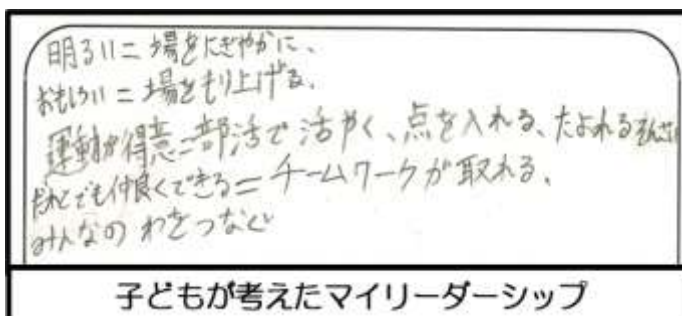 明るい=場をにぎやかに、
おもしろい=場をもり上げる、
運動が得意=部活で活やく、点を入れる、たよれるそんざい
だれとでも仲良くできる=チームワークが取れる、
みんなのわをつなぐ
子どもが考えたマイリーダーシップ